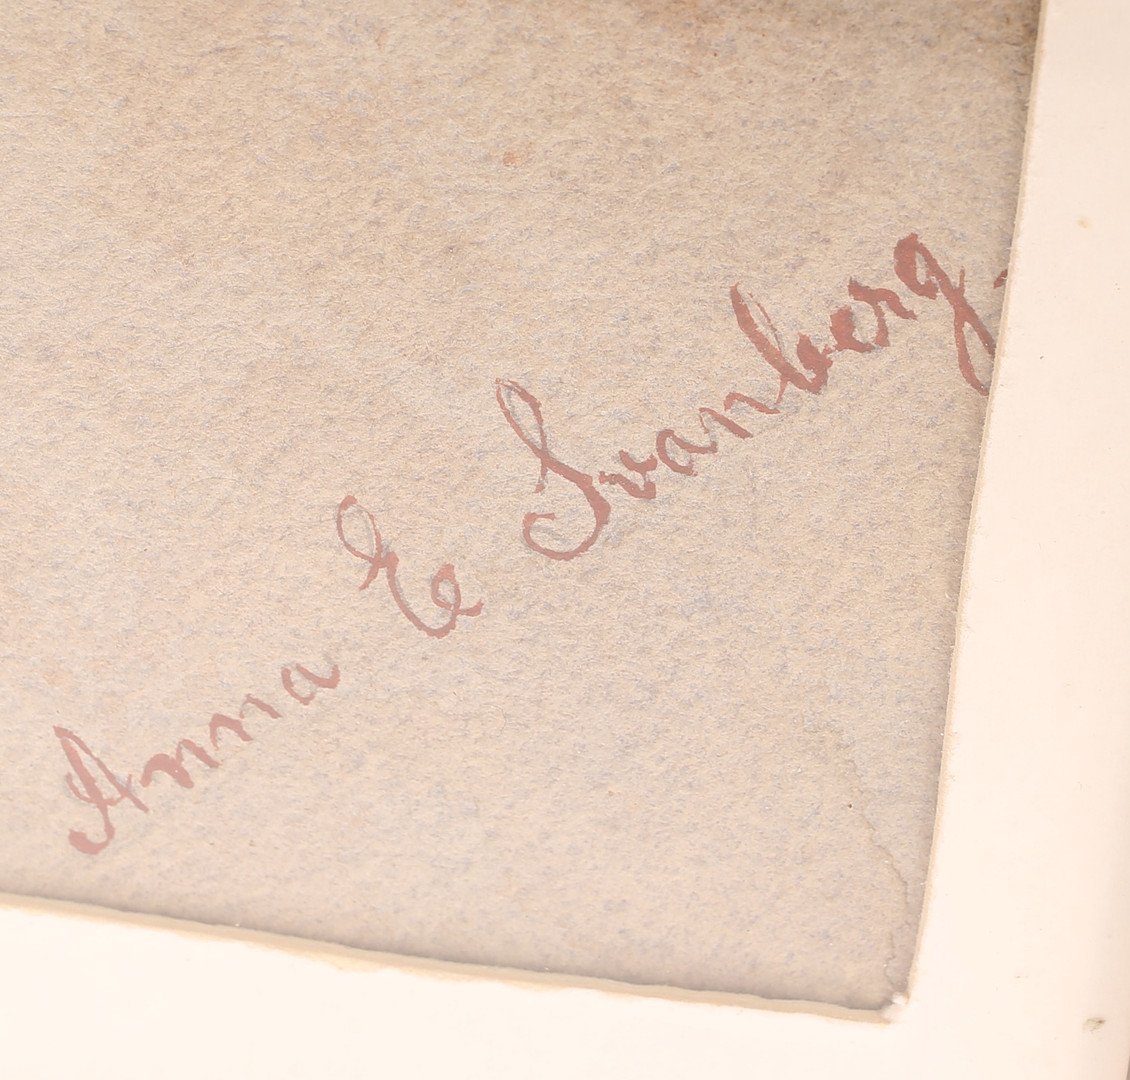 Anna E Svanberg.